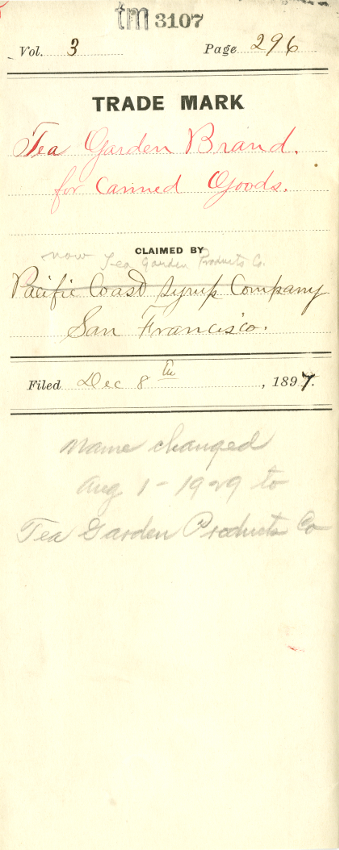 tm 3107
Vol. 3 Page 296
TRADE MARK
Tea Garden Brand.
for Canned Goods.
CLAIMED BY
now Tea Garden Products Co.
Pacific Coast Syrup Company
San Francisco.
Filed Dec 8th, 1897.
Name changed
Aug 1-1929 to
Tea Garden Products Co